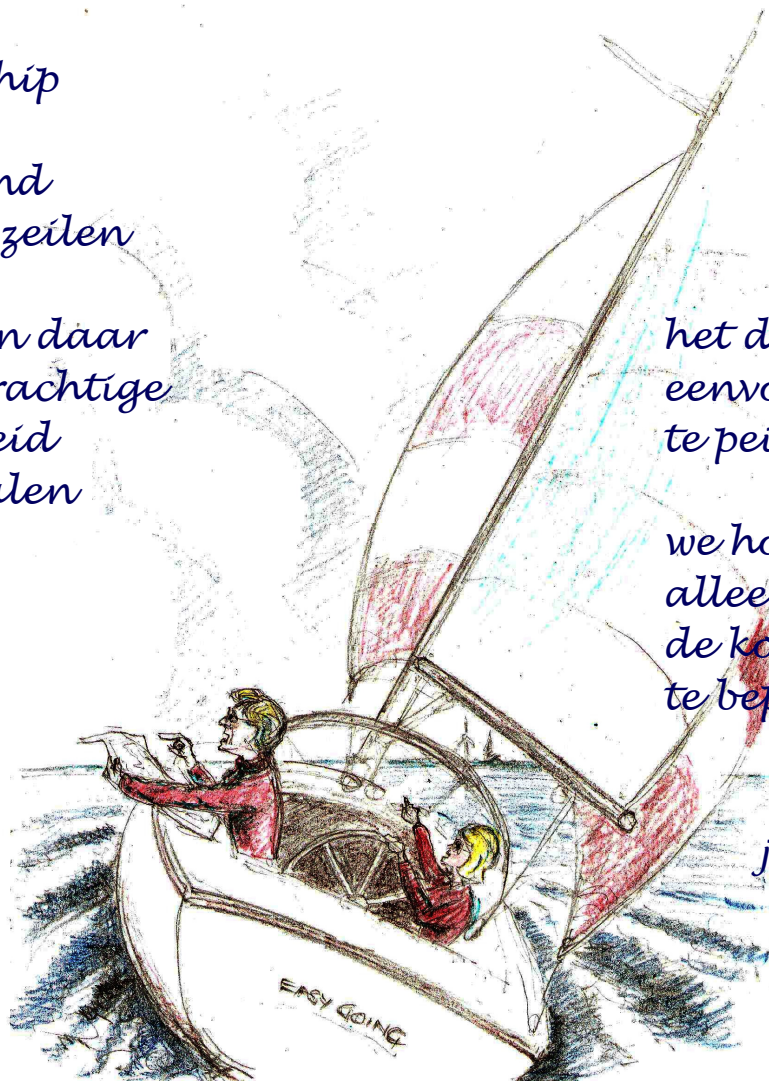 hip
nd
zeilen
n daar
rachtige
eid
len
het d
eenvo
te pei
we ho
allee
de ko
te bep
j
EASY GOING